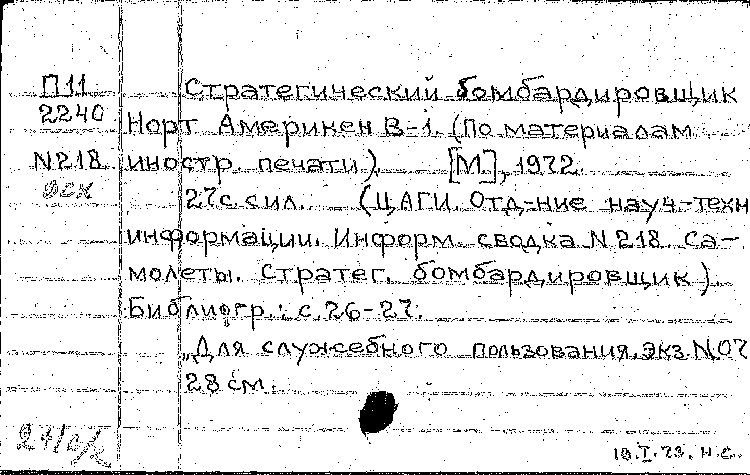 П11
2240
N218
Стратегический бомбардировщик
Норт Америкен В-1. (По материалам
иностр. печати). [М.], 1972.
27с. с ил. (ЦАГИ. Отд-ние науч.-техн
информации. Информ. сводка N 218. Са-
молеты. Стратег. бомбардировщик)
Библиогр.: с. 26-27.
„Для служебного пользования. экз. N 07
28 см.